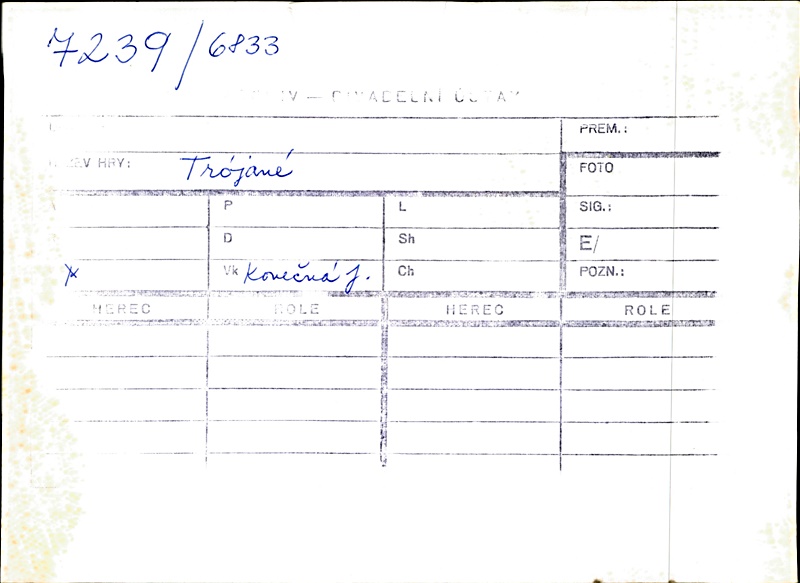 7239/6833
DIVADELNÍ ÚSTAV
PREM.:
HRY: Trójané
FOTO
P L SIG.:
D Sh E/
x Vk Konečná J. Ch POZN.:
HEREC ROLE HEREC ROLE